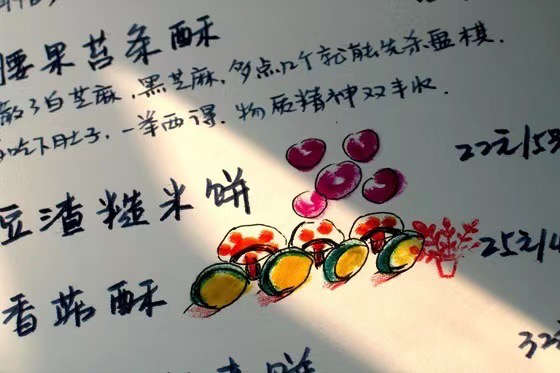 腰果苔条酥
散了白芝麻、黑芝麻，多点几个就能先杀盘棋.
吃下肚子，一举两得，物质精神双丰收.
22元/5
豆渣糙米饼
25元/4
香菇酥
32
饼